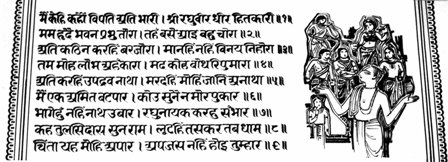 मैं केहि कहौं विपति अति भारी । श्रीरघुवीर धीर हितकारी ॥१॥
मम हृदै भवन प्रभु तोरा । तहँ बसे आइ बहु चोरा ॥२॥
अति कठिन करहिं बरजोरा । मानहिं नहिं बिनय निहोरा ॥३॥
तम मोह लोभ अहंकारा । मद कोह बोध रिपु मारा ॥४॥
अति करहिं उपद्रव नाथा । मरदहिं मोहि जानि अनाथा ॥५॥
मैं एक अमित बटपारा । कोउ सुनै न मोर पुकारा ॥६॥
भागेहु नहिं नाथ उबारा । रघुनायक करहु सँभारा ॥७॥
कह तुलसिदास सुनु रामा । लूटहिं तसकर तव धामा ॥८॥
चिंता यह मोहि अपारा । अपजस नहिं होइ तुम्हारा ॥९॥